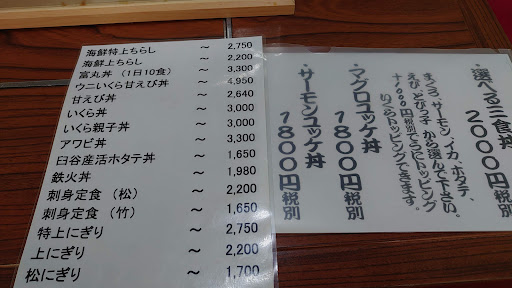 海鮮特上ちらし ～ 2,750
海鮮上ちらし ～ 2,200
富丸丼 (1日10食) ～ 3,300
ウニいくら甘えび丼 ～ 4,950
甘えび丼 ～ 2,640
いくら丼 ～ 3,000
いくら親子丼 ～ 3,000
アワビ丼 ～ 3,300
臼谷産活ホタテ丼 ～ 1,650
鉄火丼 ～ 1,980
刺身定食 (松) ～ 2,200
刺身定食 (竹) ～ 1,650
特上にぎり ～ 2,750
上にぎり ～ 2,200
松にぎり ～ 1,700
選べる三食丼
2000円税別
まぐろ、サーモン、イカ、ホタテ、
えび、とびっ子から選んで下さい。
+1000円税別でうにトッピング
いくらトッピングできます。
マグロユッケ丼
1800円税別
サーモンユッケ丼
1800円税別